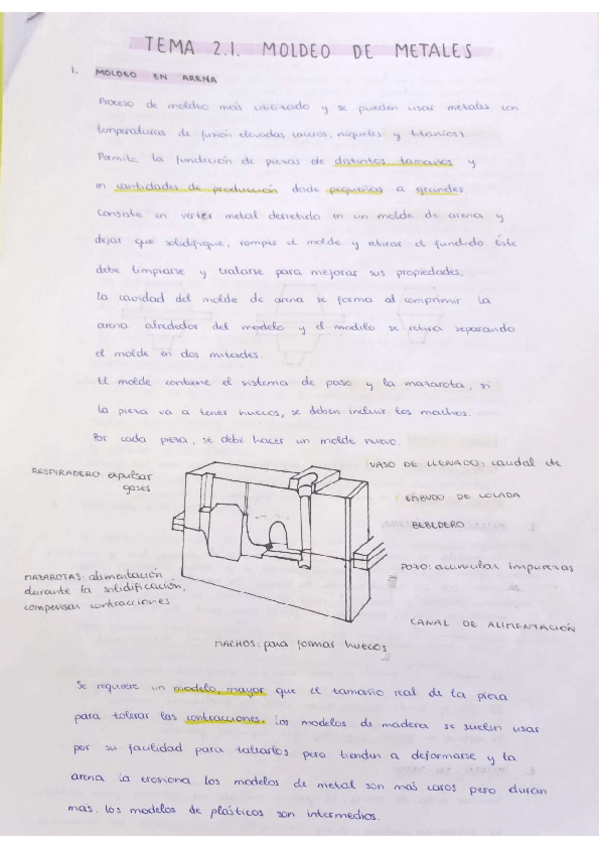 TEMA 2.1. MOLDEO DE METALES
1. MOLDEO EN ARENA
Proceso de moldeo más utilizado y se pueden usar metales con
temperaturas de fusión elevadas (aceros, níqueles y titanios).
Permite la fundición de piezas de distintos tamaños y
en cantidades de producción desde pequeñas a grandes.
Consiste en verter metal derretido en un molde de arena y
dejar que solidifique, romper el molde y retirar el fundido. Éste
debe limpiarse y tratarse para mejorar sus propiedades.
La cavidad del molde de arena se forma al comprimir la
arena alrededor del modelo y el modelo se retira separando
el molde en dos mitades.
El molde contiene el sistema de paso y la mazarota, si
la pieza va a tener huecos, se deben incluir los machos.
Por cada pieza, se debe hacer un molde nuevo.
RESPIRADERO: expulsar
gases
VASO DE LLENADO: caudal de
EMBUDO DE COLADA
BEBEDERO
MAZAROTAS: alimentación
durante la solidificación,
compensar contracciones
POZO: acumular impurezas
CANAL DE ALIMENTACIÓN
MACHOS: para formar huecos
Se requiere un modelo mayor que el tamaño real de la pieza
para tolerar las contracciones. Los modelos de madera se suelen usar
por su facilidad para tallarlos pero tienden a deformarse y la
arena la erosiona. Los modelos de metal son más caros pero duran
mas. Los modelos de plásticos son intermedios.